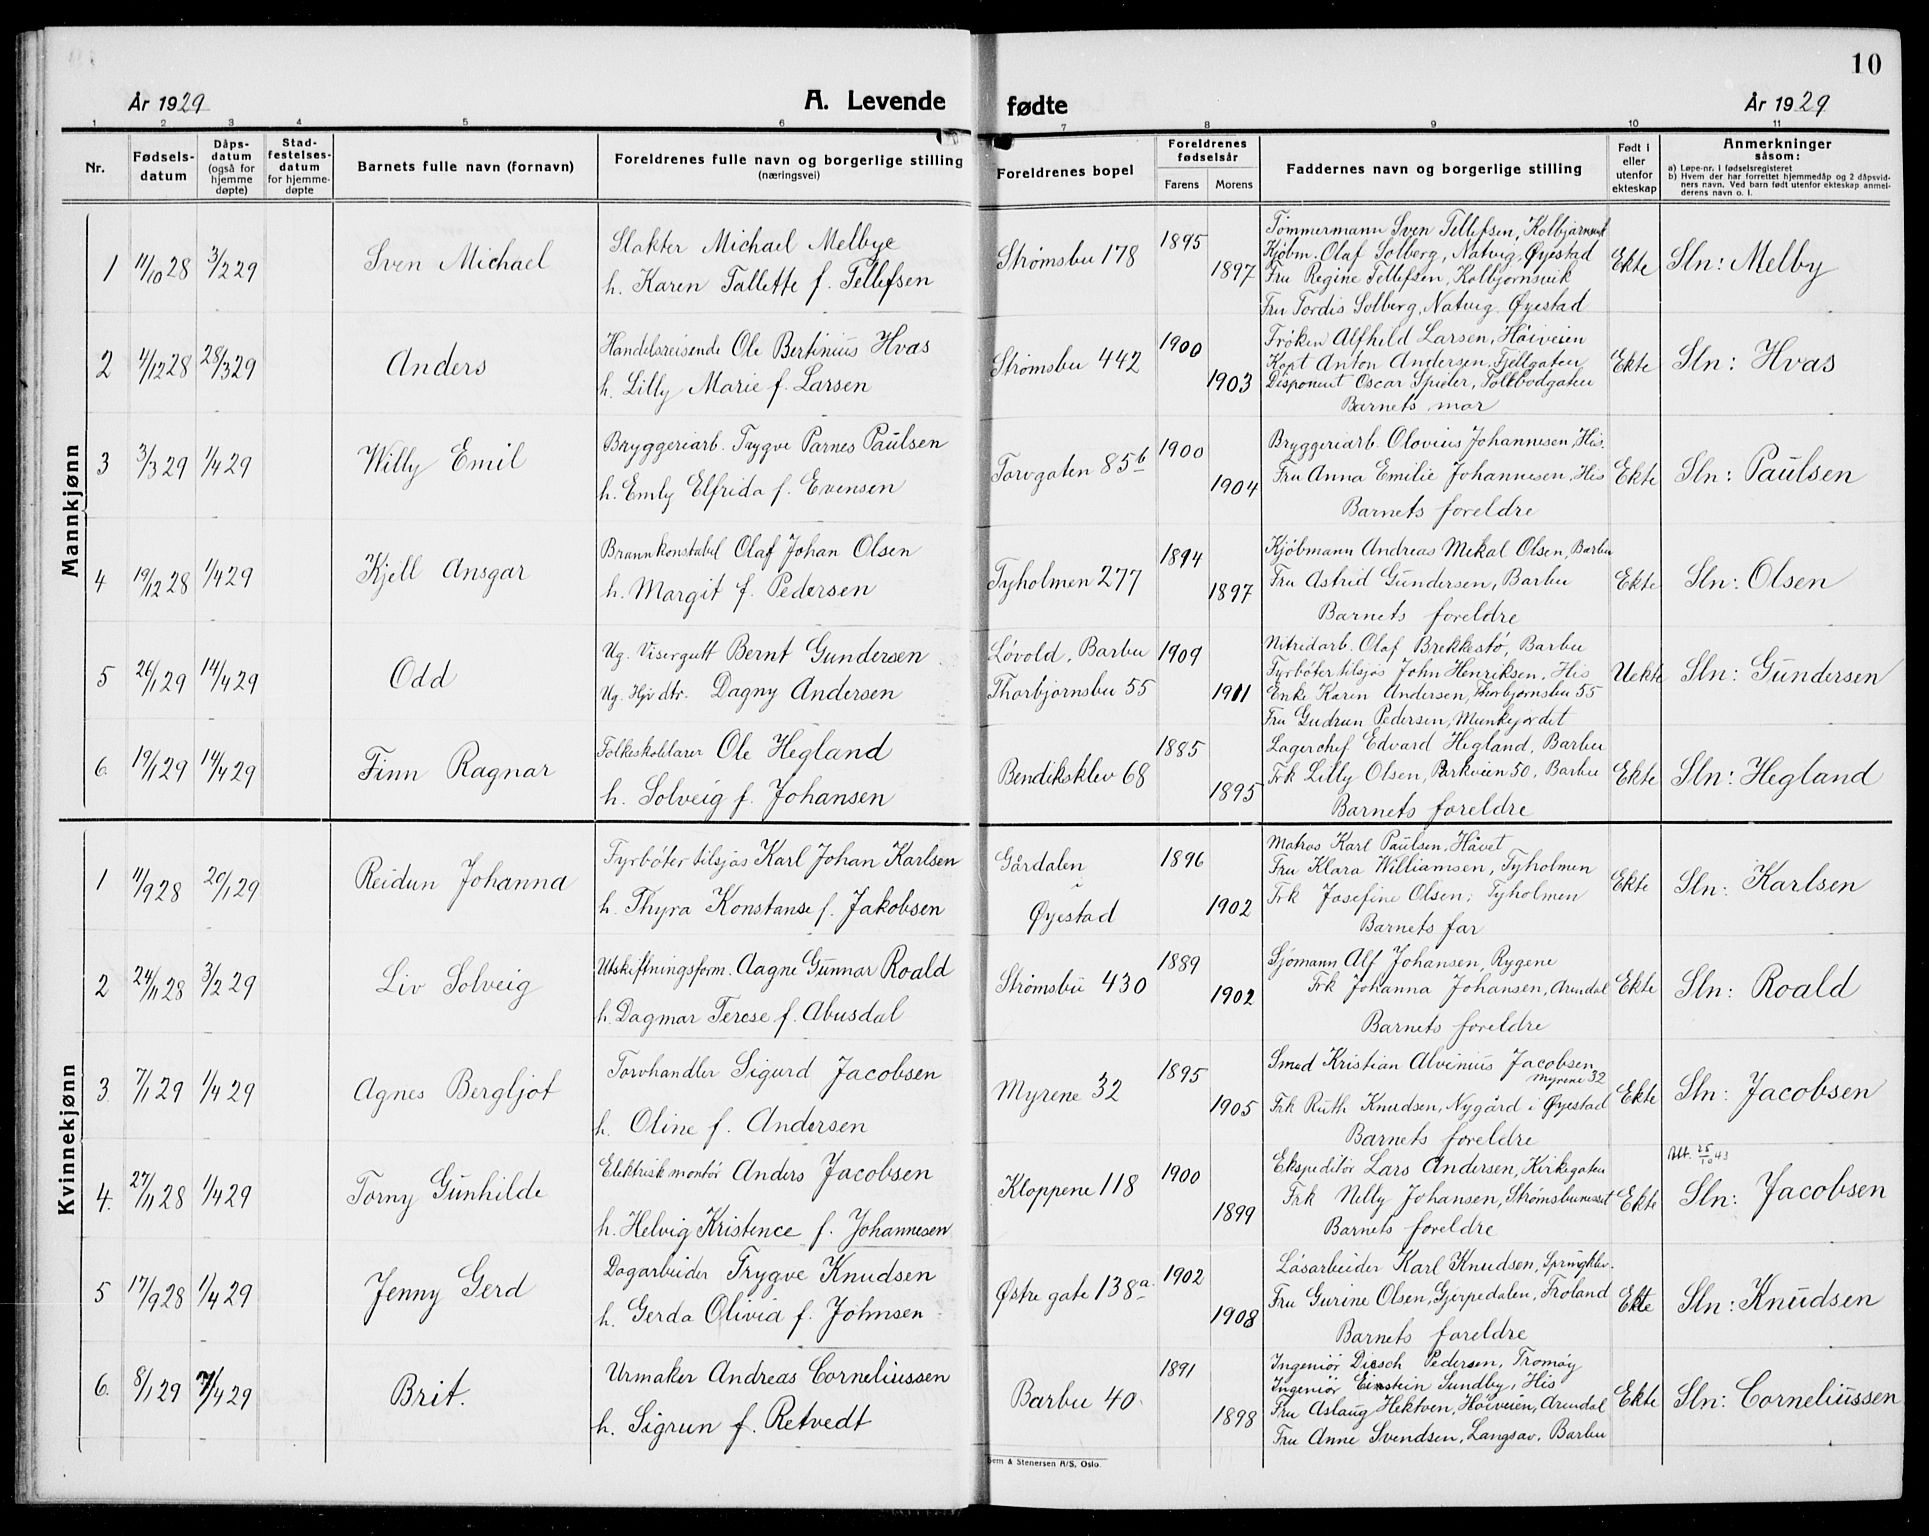 10
År 1929 A. Levende fødte År 1929
1 2 3 4 5 6 7 8 9 10 11
Nr.
Fødsels-
datum
Dåps-
datum
(også for
hjemme
døpte)
Stad-
festelses-
datum
for hjemme-
døpte
Barnets fulle navn (fornavn)
Foreldrenes fulle navn og borgerlige stilling
(næringsvei)
Foreldrenes bopel
Foreldrenes
fødselsår
Farens Morens
Faddernes navn og borgerlige stilling
Født i
eller
utenfor
ekteskap
Anmerkninger
såsom:
a) Løpe-nr. i fødselsregisteret
b) Hvem der har forrettet hjemmedåp og 2 dåpsvid-
ners navn. Ved barn født utenfor ekteskap anmel-
derens navn o. l.
Mannkjønn
1 11/10 28 3/2 29 Sven Michael
Slakter Michael Melbye
h. Karen Tallette f. Tellefsen
Strømsbu 178 1895 1897
Tømmermann Sven Tellefsen, Kolbjørnsvik
Kjøbm. Olaf Solberg, Natvig, Øyestad
Fru Regine Tellefsen, Kolbjørnsvik
Fru Tordis Solberg, Natvig, Øyestad
Ekte Sln: Melby
2 4/12 28 28/3 29 Anders
Handelsreisende Ole Bertinius Hvas
h. Lilly Marie f. Larsen
Strømsbu 442 1900 1903
Frøken Alfhild Larsen, Høiveien
Kapt Anton Andersen, Fjellgaten
Disponent Oscar Spider, Tollbodgaten
Barnets mor
Ekte Sln: Hvas
3 3/3 29 1/4 29 Willy Emil
Bryggeriarb. Trygve Parnes Paulsen
h. Emly Elfrida f. Evensen
Torvgaten 85b 1900 1904
Bryggeriarb. Olovius Johannesen His.
Fru Anna Emilie Johannesen, His
Barnets foreldre
Ekte Sln: Paulsen
4 19/12 28 1/4 29 Kjell Ansgar
Brannkonstabel Olaf Johan Olsen
h. Margit f. Pedersen
Tyholmen 277 1894 1897
Kjøbmann Andreas Mekal Olsen, Barbu
Fru Astrid Gundersen, Barbu
Barnets foreldre
Ekte Sln: Olsen
5 26/1 29 14/4 29 Odd
Ug. Visergutt Bernt Gundersen
Ug. Hjv dtr. Dagny Andersen
Løvold, Barbu
Thorbjørnsbu 55
1909 1911
Nitridarb. Olaf Brekkestø, Barbu
Fyrbøter tilsjøs John Henriksen, His
Enke Karen Andersen, Thorbjørnsbu 55
Fru Gudrun Pedersen, Munkejordet
Uekte Sln: Gundersen
6. 19/1 29 14/4 29 Finn Ragnar
Folkeskolelærer Ole Hegland
h. Solveig f. Johansen
Bendiksklev 68 1885 1895
Lagerchef Edvard Hegland, Barbu
Frk Lilly Olsen, Parkveien 50, Barbu
Barnets foreldre
Ekte Sln: Hegland
Kvinnekjønn
1 11/9 28 20/1 29 Reidun Johanna
Fyrbøter tilsjøs Karl Johan Karlsen
h. Thyra Konstanse f. Jakobsen
Gårdalen
i
Øyestad
1896 1902
Matros Karl Paulsen, Håvet
Fru Klara Williamsen, Tyholmen
Frk Josefine Olsen, Tyholmen
Barnets far
Ekte Sln: Karlsen
2 24/11 28 3/2 29 Liv Solveig
Utskiftningsform. Aagne Gunnar Roald
h. Dagmar Terese f. Abusdal
Strømsbu 430 1889 1902
Sjømann Alf Johansen, Rygene
Frk Johanna Johansen, Arendal
Barnets foreldre
Ekte Sln: Roald
3. 7/1 29 1/4 29 Agnes Bergljot
Torvhandler Sigurd Jacobsen
h. Oline f. Andersen
Myrene 32 1895 1905
Smed Kristian Alvinius Jacobsen
Myrene 32
Frk Ruth Knudsen, Nygård i Øyestad
Barnets foreldre
Ekte Sln: Jacobsen
4. 27/11 28 1/4 29 Torny Gunhilde
Elektrisk montør Anders Jacobsen
h. Helvig Kristence f. Johannesen
Kloppene 118 1900 1899
Ekspeditør Lars Andersen, Kirkegaten
Frk Nelly Johansen, Strømsbuneset
Barnets foreldre
Ekte Utt. 25/10 43
Sln: Jacobsen
5 17/9 28 1/4 29 Jenny Gerd
Dagarbeider Trygve Knudsen
h. Gerda Olivia f. Johnsen
Østre gate 138a 1902 1908
Løsarbeider Karl Knudsen, Springklev.
Fru Gurine Olsen, Gjirpedalen, Froland
Barnets foreldre
Ekte Sln: Knudsen
6. 8/1 29 7/4 29 Brit.
Urmaker Andreas Corneliussen
h. Sigrun f. Retvedt
Barbu 40. 1891 1898
Ingeniør Diesch Pedersen, Tromøy
Ingeniør Einstein Sundby, His
Fru Aslaug Hektven, Høiveien, Arendal
Fru Anne Svendsen, Langsæv, Barbu
Ekte Sln: Corneliussen
Sem & Stenersen A/S, Oslo.